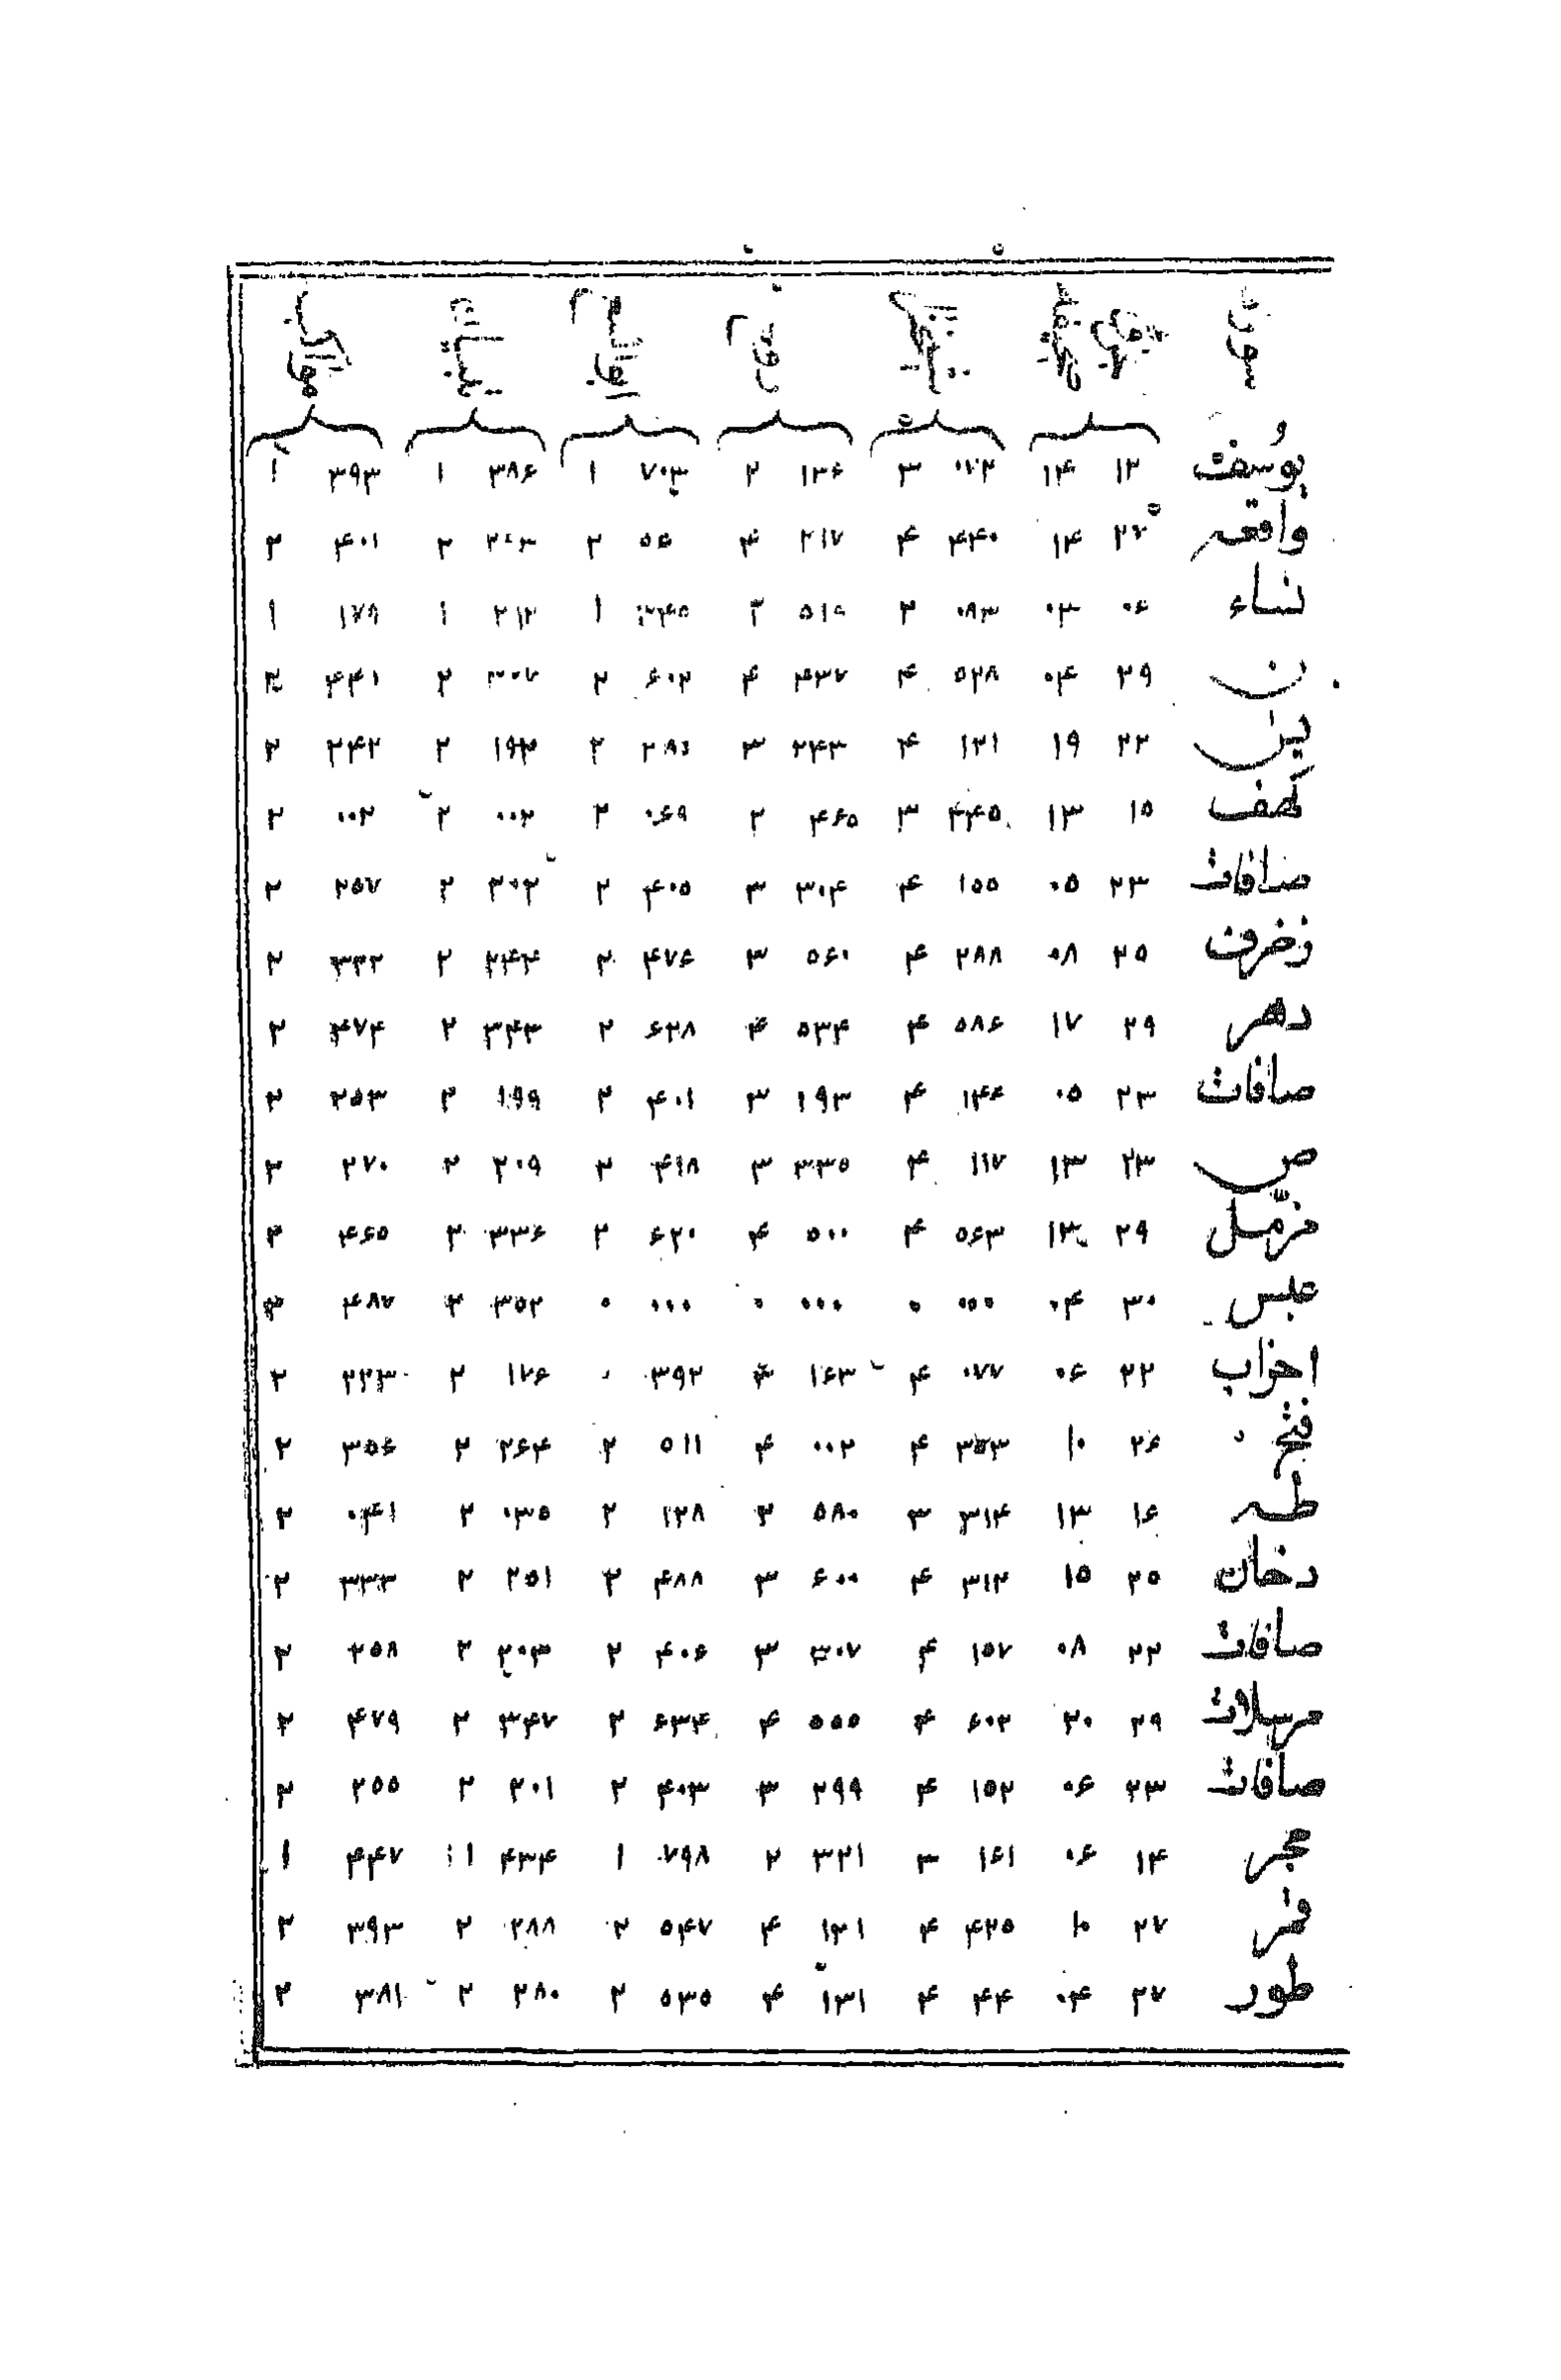 یوسف ۱۲ ۱۴ ۰۲۲ ۳ ۱۳۶ ۲ ۷۰۳ ۱ ۳۸۶ ۱ ۳۹۳ ۱
واقعه ۲۷ ۱۴ ۴۴۰ ۴ ۲۱۷ ۴ ۵۶ ۲ ۲ ۴۰۱ ۲
نساء ۰۶ ۰۳ ۰۸۳ ۲ ۵۱۹ ۲ ۱ ۲۱۲ ۱ ۱۷۹ ۱
ن ۲۹ ۰۴ ۵۲۸ ۴ ۴۳۷ ۴ ۶۰۲ ۲ ۳۰۷ ۲ ۴۴۱ ۲
یس ۲۲ ۱۹ ۱۲۱ ۴ ۲۴۳ ۳ ۲ ۱۹۳ ۲ ۲۴۲ ۲
کهف ۱۵ ۱۳ ۲۴۵ ۳ ۴۶۵ ۲ ۰۶۹ ۲ ۰۰۲ ۲ ۰۰۲ ۲
صافات ۲۳ ۰۵ ۱۵۵ ۴ ۳۰۴ ۳ ۴۰۵ ۲ ۲۰۲ ۲ ۲۵۷ ۲
زخرف ۲۵ ۰۸ ۲۸۸ ۴ ۵۶۰ ۳ ۴۷۶ ۲ ۲۴۴ ۲ ۳۲۲ ۲
دهر ۲۹ ۱۷ ۵۸۶ ۴ ۵۳۴ ۴ ۶۲۸ ۲ ۳۴۳ ۲ ۴۷۴ ۲
صافات ۲۳ ۰۵ ۱۴۶ ۴ ۱۹۳ ۳ ۴۰۱ ۲ ۱۹۹ ۲ ۲۵۳ ۲
ص ۲۳ ۱۳ ۱۱۷ ۴ ۳۳۵ ۳ ۴۱۸ ۲ ۲۰۹ ۲ ۲۷۰ ۲
مزمّل ۲۹ ۱۳ ۵۶۳ ۴ ۵۰۰ ۴ ۶۲۰ ۲ ۳۳۶ ۲ ۴۶۵ ۲
عبس ۳۰ ۰۴ ۰۰۰ ۰ ۰۰۰ ۰ ۰۰۰ ۰ ۳۵۲ ۲ ۴۸۷ ۲
احزاب ۲۲ ۰۶ ۰۷۷ ۴ ۱۶۳ ۳ ۳۹۲ ۰ ۱۷۶ ۲ ۲۲۳ ۲
فتح ۲۶ ۱۰ ۳۵۳ ۴ ۰۰۲ ۴ ۵۱۱ ۲ ۲۶۴ ۲ ۳۵۶ ۲
طه ۱۶ ۱۳ ۳۱۴ ۳ ۵۸۰ ۲ ۱۲۸ ۲ ۰۳۵ ۲ ۰۴۱ ۲
دخان ۲۵ ۱۵ ۳۱۲ ۴ ۶۰۰ ۳ ۴۸۸ ۲ ۲۵۱ ۲ ۳۳۳ ۲
صافات ۲۲ ۰۸ ۱۵۷ ۴ ۳۰۷ ۳ ۴۰۶ ۲ ۲۰۳ ۲ ۲۵۸ ۲
مرسلات ۲۹ ۲۰ ۶۰۲ ۴ ۵۵۵ ۴ ۶۳۴ ۲ ۳۴۷ ۲ ۴۷۹ ۲
صافات ۲۳ ۰۶ ۱۵۲ ۴ ۲۹۹ ۳ ۴۰۳ ۲ ۲۰۱ ۲ ۲۵۵ ۲
حجر ۱۴ ۰۶ ۱۶۱ ۳ ۳۲۱ ۲ ۷۹۸ ۱ ۴۳۴ ۱ ۴۴۷ ۱
قمر ۲۷ ۱۰ ۴۲۵ ۴ ۱۲۱ ۴ ۵۴۷ ۲ ۲۸۸ ۲ ۳۹۳ ۲
طور ۲۷ ۰۴ ۴۴ ۴ ۱۳۱ ۴ ۵۳۵ ۲ ۲۸۰ ۲ ۳۸۱ ۲